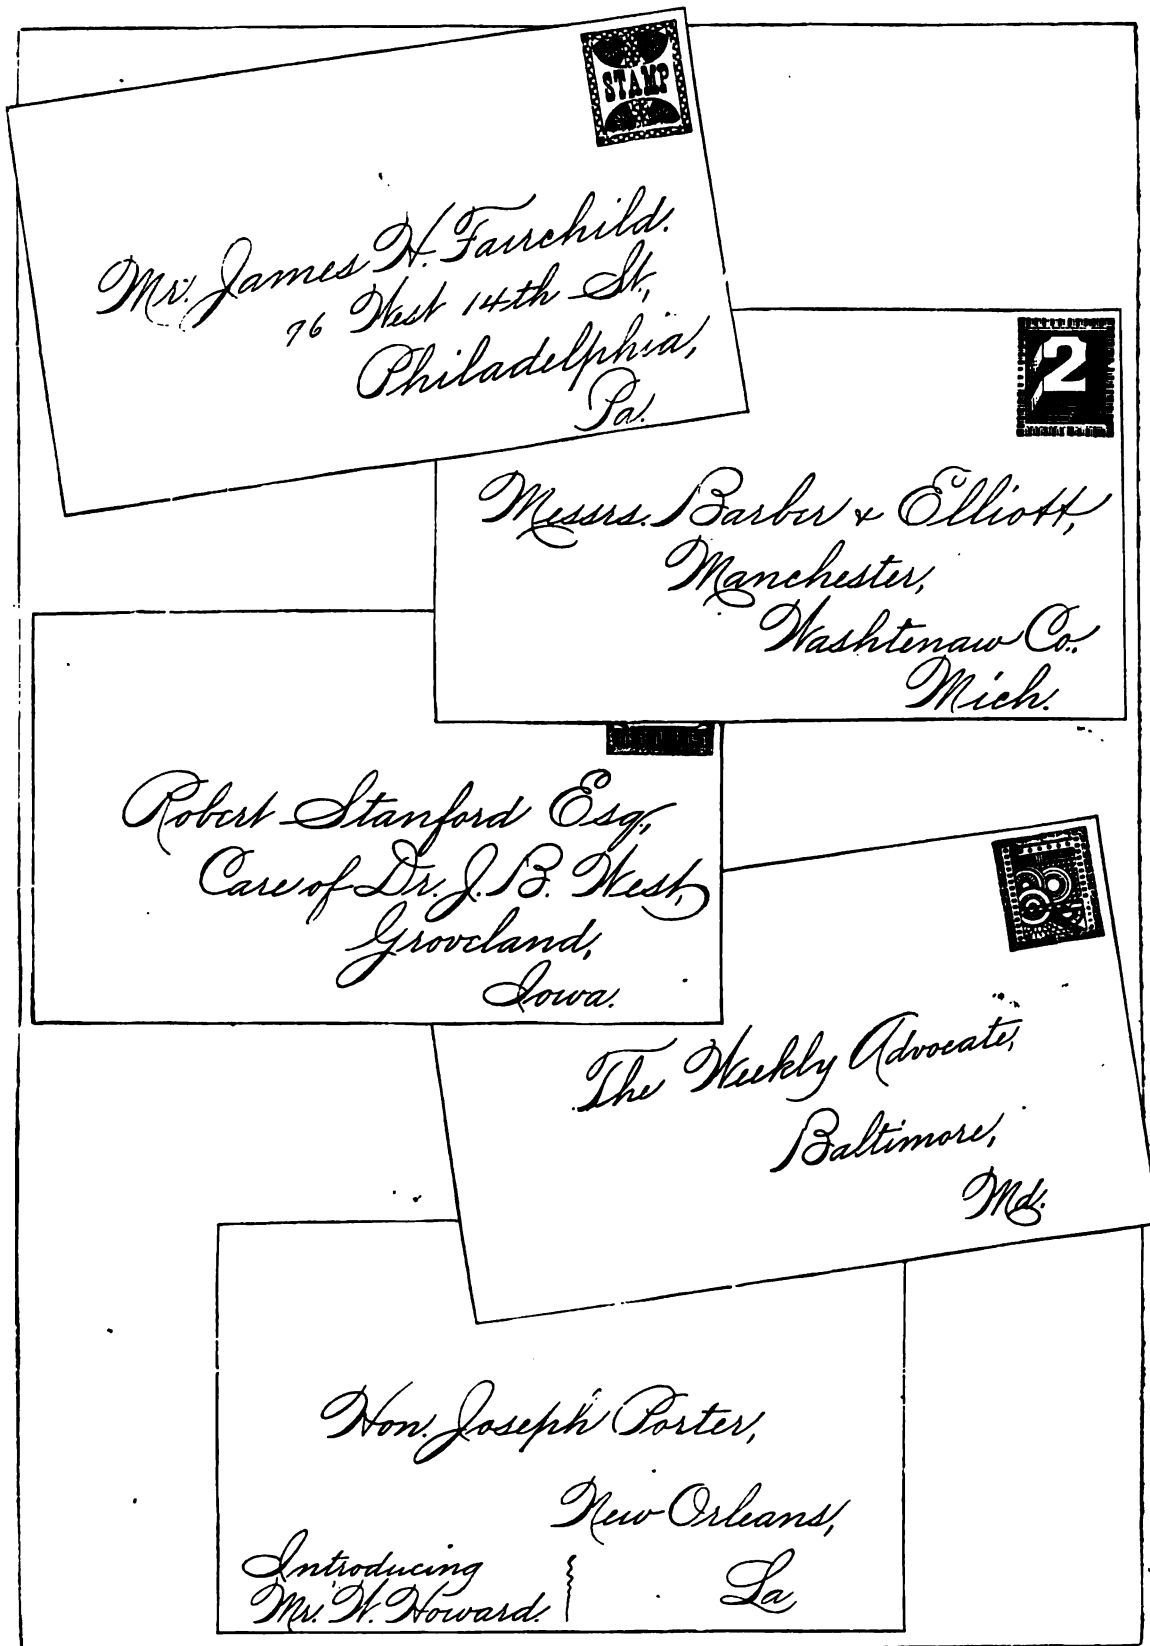 STAMP
Mr. James H. Fairchild.
76 West 14th St.,
Philadelphia,
Pa.
2
Messrs. Barber & Elliott,
Manchester,
Washtenaw Co.
Mich.
Robert Stanford Esq.,
Care of Dr. J. B. West,
Groveland,
Iowa.
The Weekly Advocate,
Baltimore,
Md.
Hon. Joseph Porter,
New Orleans,
La
Introducing
Mr. W. Howard.